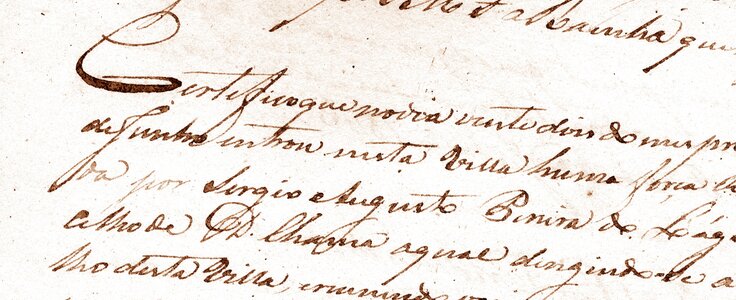 a Rainha que
Certifico que no dia vinte dois do mes pro
de Junho entrou nesta Villa huma força
da por Sergio Augusto Pereira de Lága
celho de D. Chama a qual dirigindo-se a
lho desta Villa,